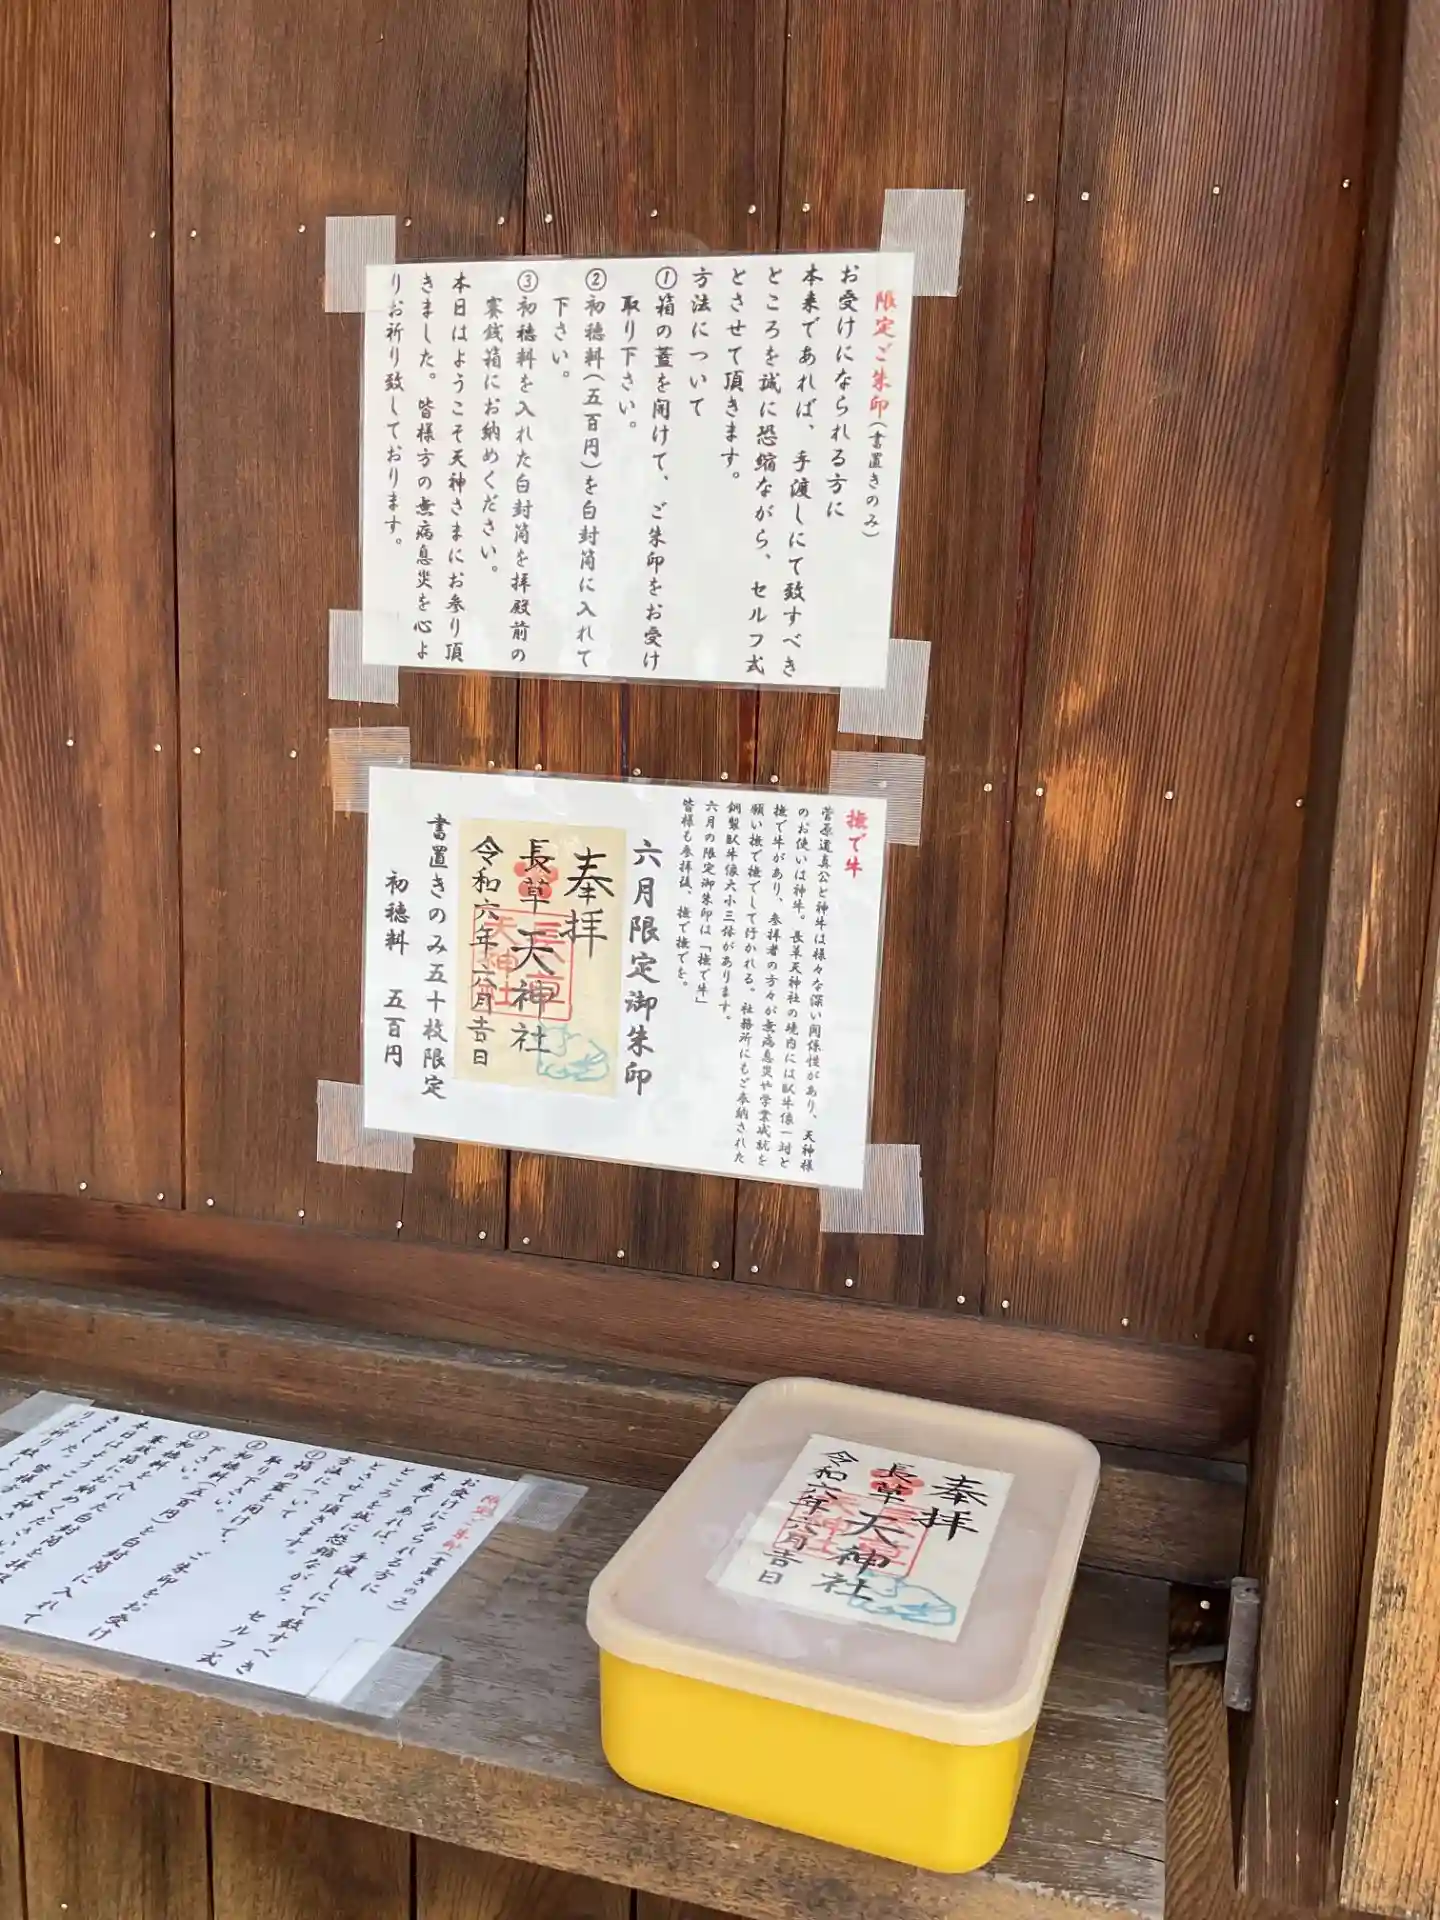 限定ご朱印(書置きのみ)
お受けになられる方に
本来であれば、手渡しにて致すべき
ところを誠に恐縮ながら、セルフ式
とさせて頂きます。
方法について
①箱の蓋を開けて、ご朱印をお受け
取り下さい。
②初穂料(五百円)を白封筒に入れて
下さい。
③初穂料を入れた白封筒を拝殿前の
賽銭箱にお納めください。
本日はようこそ天神さまにお参り頂
きました。皆様方の無病息災を心よ
りお祈り致しております。
撫で牛
菅原道真公と神牛は様々な深い関係性があり、天神様
のお使いは神牛。長草天神社の境内には臥牛像一対と
撫で牛があり、参拝者の方々が無病息災や学業成就を
願い撫で撫でして行かれる。社務所にもご奉納された
銅製臥牛像大小三体があります。
六月の限定御朱印は「撫で牛」
皆様も参拝後、撫で撫でを。
六月限定御朱印
奉拝
長草天神社
天神社
令和六年六月吉日
書置きのみ五十枚限定
初穂料 五百円
限定ご朱印(書置きのみ)
お受けになられる方に
本来であれば、手渡しにて致すべき
ところを誠に恐縮ながら、セルフ式
とさせて頂きます。
方法について
①箱の蓋を開けて、ご朱印をお受け
取り下さい。
②初穂料(五百円)を白封筒に入れて
下さい。
③初穂料を入れた白封筒を拝殿
賽銭箱にお納めください
本日はようこそ天神さま
きました。皆様方
りお祈り致し
奉拝
長草天神社
令和六年六月吉日